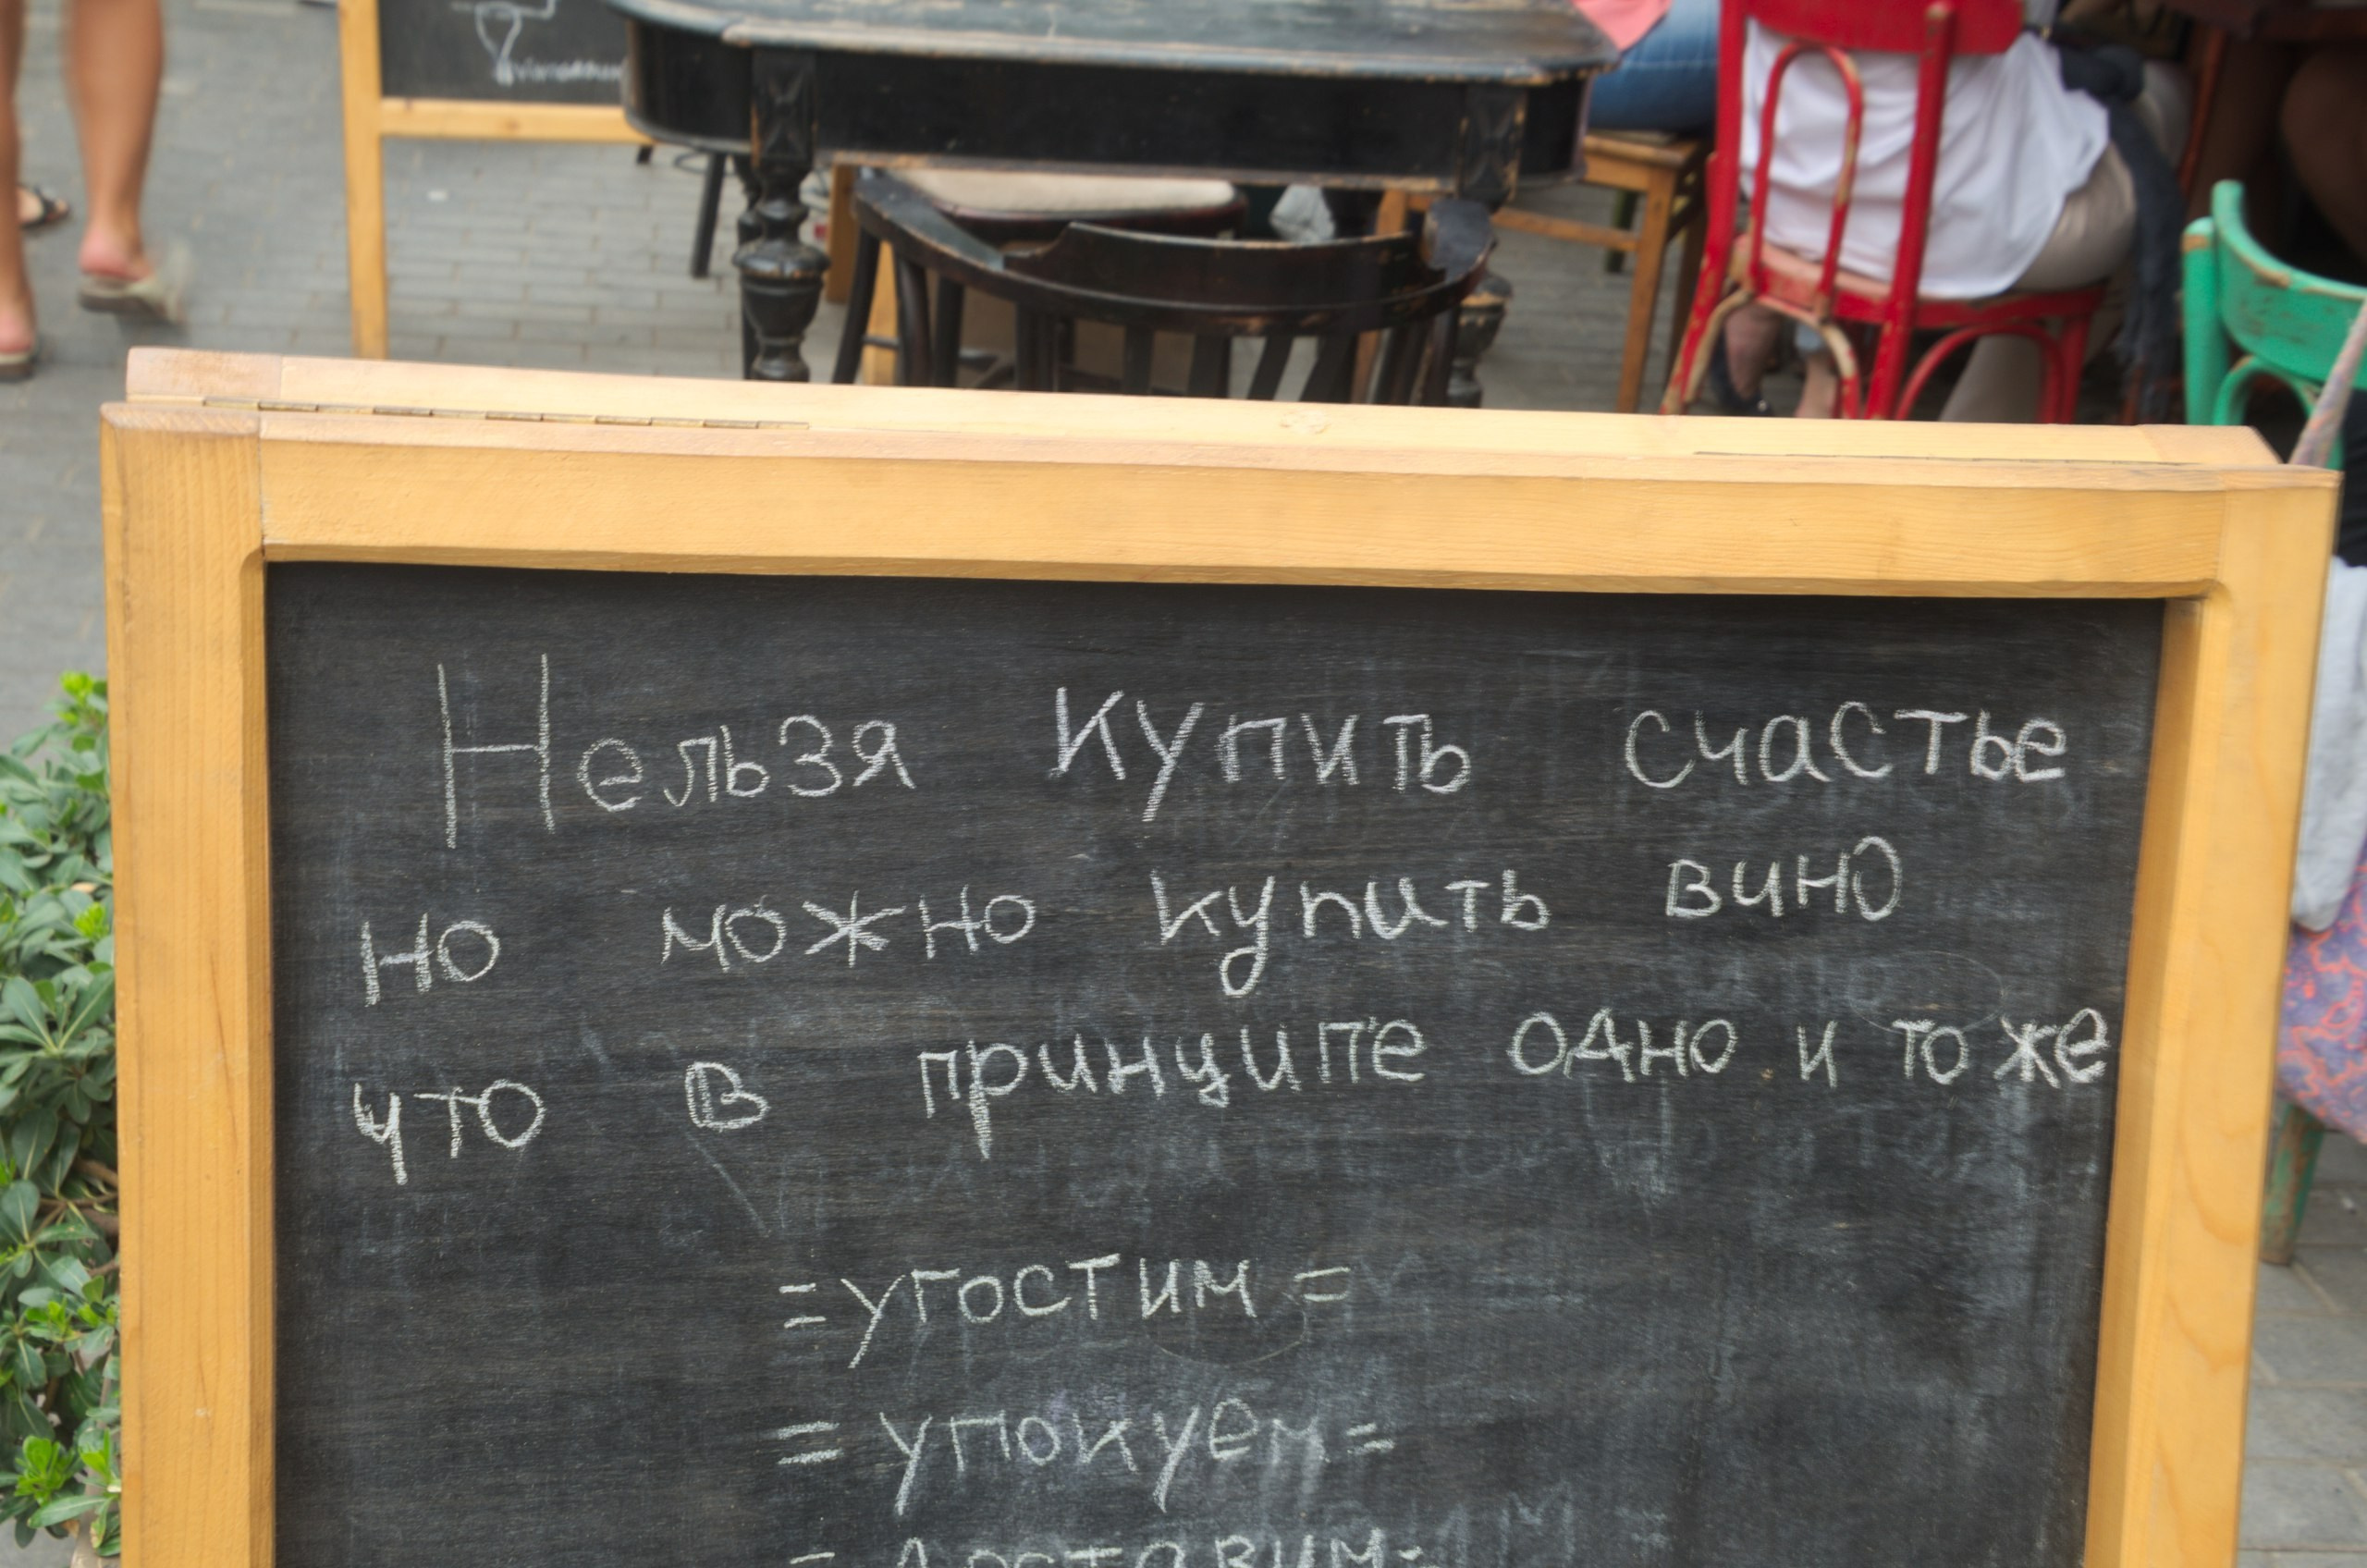 Нельзя купить счастье
но можно купить вино
что в принципе одно и тоже
= угостим =
= упокуем =
= доставим =